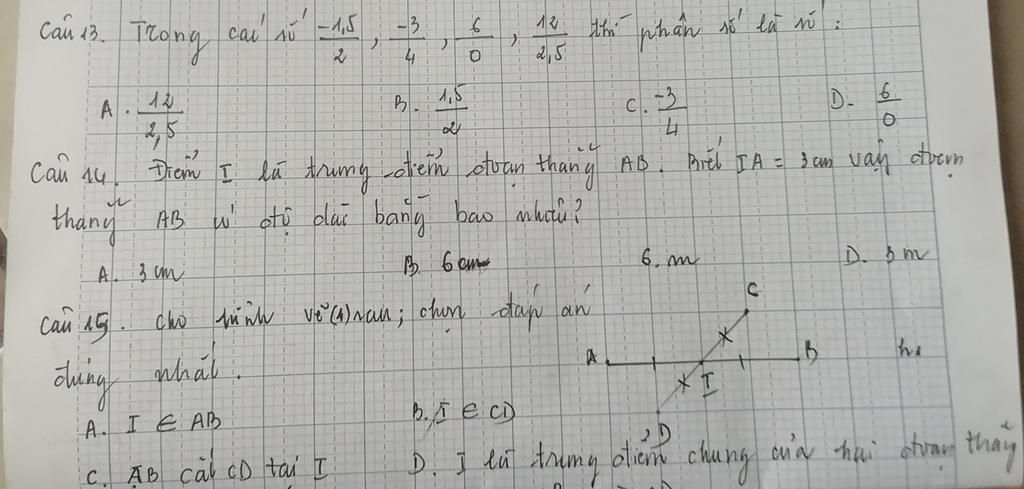 Câu 13. Trong các số -1,5/2, -3/4, 6/0, 12/2,5 thì phân số là số:
A. 12/2,5 B. 1,5/2 C. -3/4 D. 6/0
Câu 14. Điểm I là trung điểm đoạn thẳng AB. Biết IA = 3cm vậy đoạn
thẳng AB có độ dài bằng bao nhiêu?
A. 3cm B. 6cm 6. m D. 3m
Câu 15. Cho hình vẽ (1) sau; chọn đáp án
đúng nhất.
A B C D I h1
A. I ∈ AB B. I ∈ CD
C. AB cắt CD tại I D. I là trung điểm chung của hai đoạn thẳng